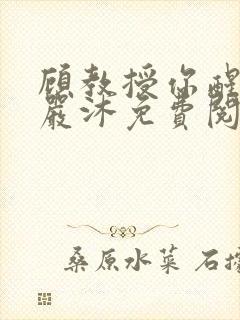 顾教授你醒
严沐免费阅
桑原水菜 石据